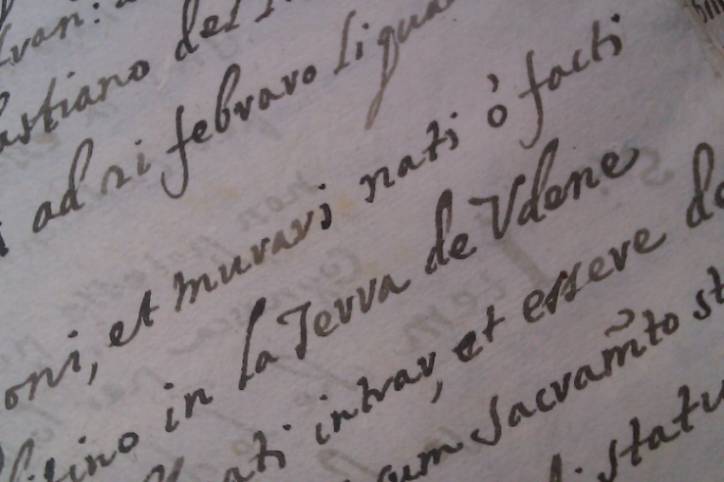 bastiano del
ad 21 febraro li qua
oni, et murari nati ò facti
in la Terra de Udene
ati intrar, et essere
cum sacram̃to st
statu